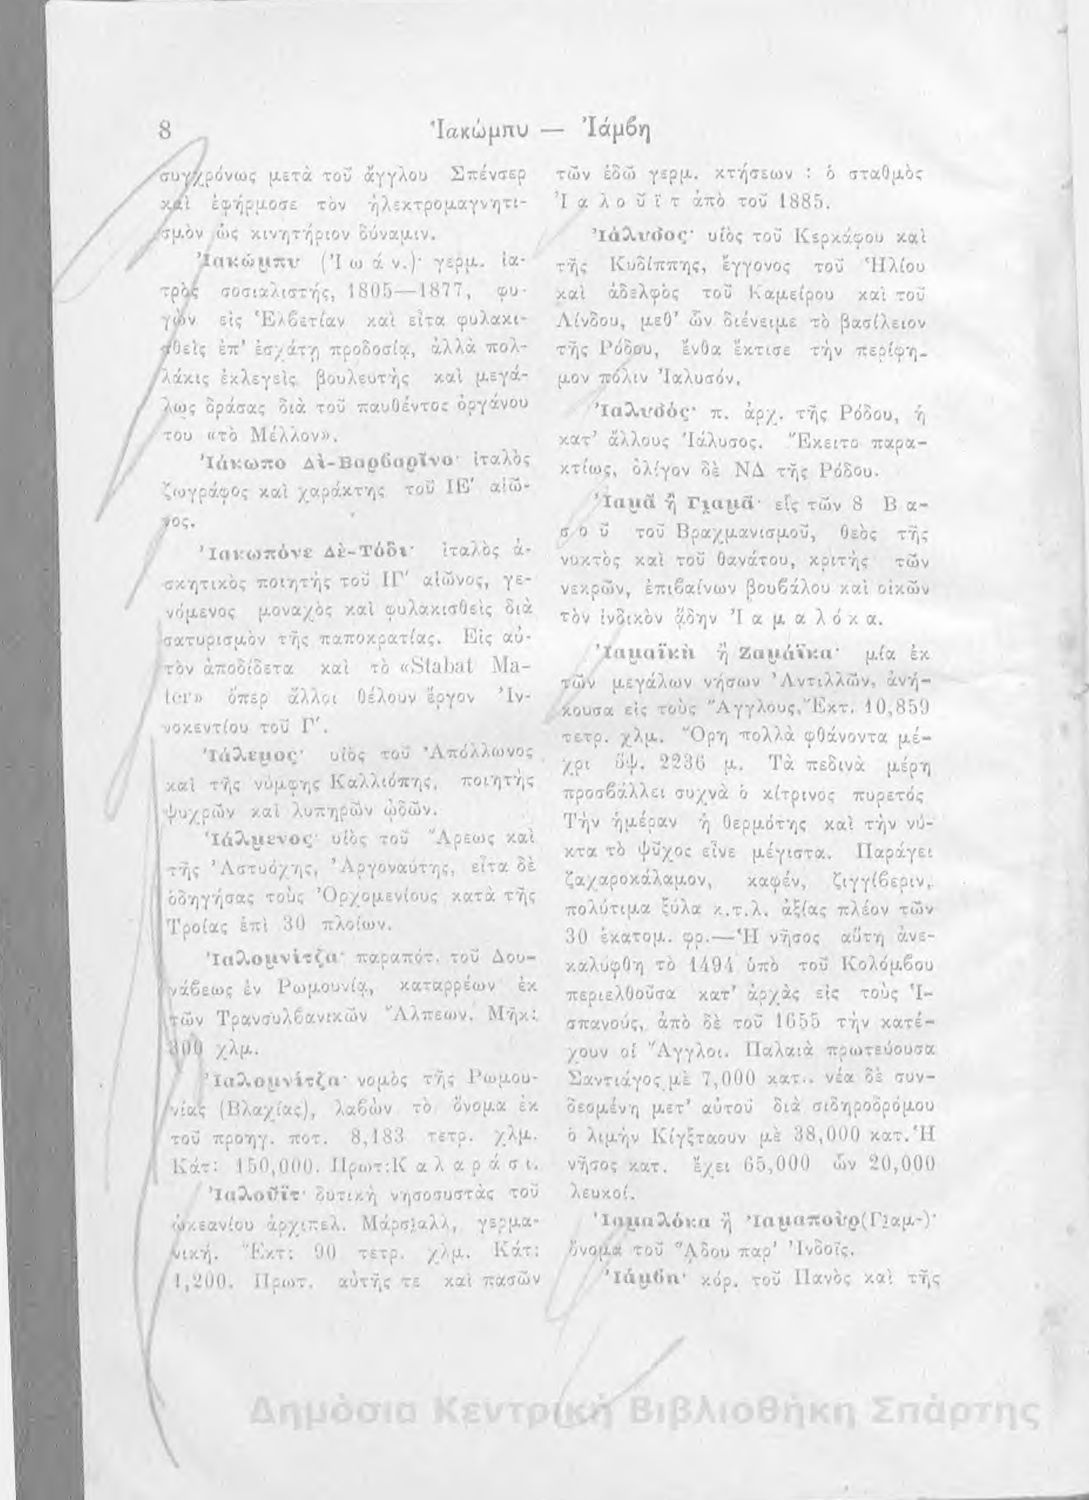 8
Ἰακώμπυ — Ἰάμβη
συγχρόνως μετὰ τοῦ ἄγγλου Σπένσερ
καὶ ἐφήρμοσε τὸν ἠλεκτρομαγνητι-
σμὸν ὡς κινητήριον δύναμιν.
Ἰακώμπυ (Ἰωάν.)· γερμ. ἰα-
τρὸς σοσιαλιστής, 1805—1877, φυ-
γὼν εἰς Ἑλβετίαν καὶ εἶτα φυλακι-
σθεὶς ἐπ’ ἐσχάτῃ προδοσίᾳ, ἀλλὰ πολ-
λάκις ἐκλεγεὶς βουλευτὴς καὶ μεγά-
λως δράσας διὰ τοῦ παυθέντος ὀργάνου
του «τὸ Μέλλον».
Ἰάκωπο Δὲ-Βαρβαρῖνο· ἰταλὸς
ζωγράφος καὶ χαράκτης τοῦ ΙΕ′ αἰῶ-
νος.
Ἰακωπόνε Δὲ-Τόδι· ἰταλὸς ἀ-
σκητικὸς ποιητὴς τοῦ ΙΓ′ αἰῶνος, γε-
νόμενος μοναχὸς καὶ φυλακισθεὶς διὰ
σατυρισμὸν τῆς παποκρατίας. Εἰς αὐ-
τὸν ἀποδίδεται καὶ τὸ «Stabat Ma-
ter» ὅπερ ἄλλοι θέλουν ἔργον Ἰν-
νοκεντίου τοῦ Γ′.
Ἰάλεμος· υἱὸς τοῦ Ἀπόλλωνος
καὶ τῆς νύμφης Καλλιόπης, ποιητὴς
ψυχρῶν καὶ λυπηρῶν ᾠδῶν.
Ἰάλμενος· υἱὸς τοῦ Ἄρεως καὶ
τῆς Ἀστυόχης, Ἀργοναύτης, εἶτα δὲ
ὁδηγήσας τοὺς Ὀρχομενίους κατὰ τῆς
Τροίας ἐπὶ 30 πλοίων.
Ἰαλομνίτζα· παραπότ. τοῦ Δου-
νάβεως ἐν Ρωμουνίᾳ, καταρρέων ἐκ
τῶν Τρανσυλβανικῶν Ἄλπεων. Μῆκ:
300 χλμ.
Ἰαλομνίτζα· νομὸς τῆς Ρωμου-
νίας (Βλαχίας), λαβὼν τὸ ὄνομα ἐκ
τοῦ προηγ. ποτ. 8,183 τετρ. χλμ.
Κάτ: 150,000. Πρωτ:Καλαράσι.
Ἰαλοῦϊτ· δυτικὴ νησοσυστὰς τοῦ
ὠκεανίου ἀρχιπελ. Μάρσιαλλ, γερμα-
νική. Ἔκτ: 90 τετρ. χλμ. Κάτ:
1,200. Πρωτ. αὐτῆς τε καὶ πασῶν
τῶν ἐδῶ γερμ. κτήσεων : ὁ σταθμὸς
Ἰαλοῦϊτ ἀπὸ τοῦ 1885.
Ἰάλυσος· υἱὸς τοῦ Κερκάφου καὶ
τῆς Κυδίππης, ἔγγονος τοῦ Ἡλίου
καὶ ἀδελφὸς τοῦ Καμείρου καὶ τοῦ
Λίνδου, μεθ’ ὧν διένειμε τὸ βασίλειον
τῆς Ρόδου, ἔνθα ἔκτισε τὴν περίφη-
μον πόλιν Ἰαλυσόν.
Ἰαλυσός· π. ἀρχ. τῆς Ρόδου, ἡ
κατ’ ἄλλους Ἰάλυσος. Ἔκειτο παρα-
κτίως, ὀλίγον δὲ ΝΔ τῆς Ρόδου.
Ἰαμᾶ ἢ Γιαμᾶ· εἷς τῶν 8 Βα-
σοῦ τοῦ Βραχμανισμοῦ, θεὸς τῆς
νυκτὸς καὶ τοῦ θανάτου, κριτὴς τῶν
νεκρῶν, ἐπιβαίνων βουβάλου καὶ οἰκῶν
τὸν ἰνδικὸν ᾅδην Ἰαμαλόκα.
Ἰαμαϊκὴ ἢ Ζαμάϊκα· μία ἐκ
τῶν μεγάλων νήσων Ἀντιλλῶν, ἀνή-
κουσα εἰς τοὺς Ἄγγλους. Ἔκτ. 10,859
τετρ. χλμ. Ὄρη πολλὰ φθάνοντα μέ-
χρι ὕψ. 2236 μ. Τὰ πεδινὰ μέρη
προσβάλλει συχνὰ ὁ κίτρινος πυρετός
Τὴν ἡμέραν ἡ θερμότης καὶ τὴν νύ-
κτα τὸ ψῦχος εἶνε μέγιστα. Παράγει
ζαχαροκάλαμον, καφέν, ζιγγίβεριν,
πολύτιμα ξύλα κ.τ.λ. ἀξίας πλέον τῶν
30 ἑκατομ. φρ.—Ἡ νῆσος αὕτη ἀνε-
καλύφθη τὸ 1494 ὑπὸ τοῦ Κολόμβου
περιελθοῦσα κατ’ ἀρχὰς εἰς τοὺς Ἱ-
σπανούς, ἀπὸ δὲ τοῦ 1655 τὴν κατέ-
χουν οἱ Ἄγγλοι. Παλαιὰ πρωτεύουσα
Σαντιάγος μὲ 7,000 κατ., νέα δὲ συν-
δεομένη μετ’ αὐτοῦ διὰ σιδηροδρόμου
ὁ λιμὴν Κίγξταουν μὲ 38,000 κατ. Ἡ
νῆσος κατ. ἔχει 65,000 ὧν 20,000
λευκοί.
Ἰαμαλόκα ἢ Ἰαμαποὺρ(Γιαμ-)·
ὄνομα τοῦ ᾍδου παρ’ Ἰνδοῖς.
Ἰάμβη· κόρ. τοῦ Πανὸς καὶ τῆς
Δημόσια Κεντρική Βιβλιοθήκη Σπάρτης